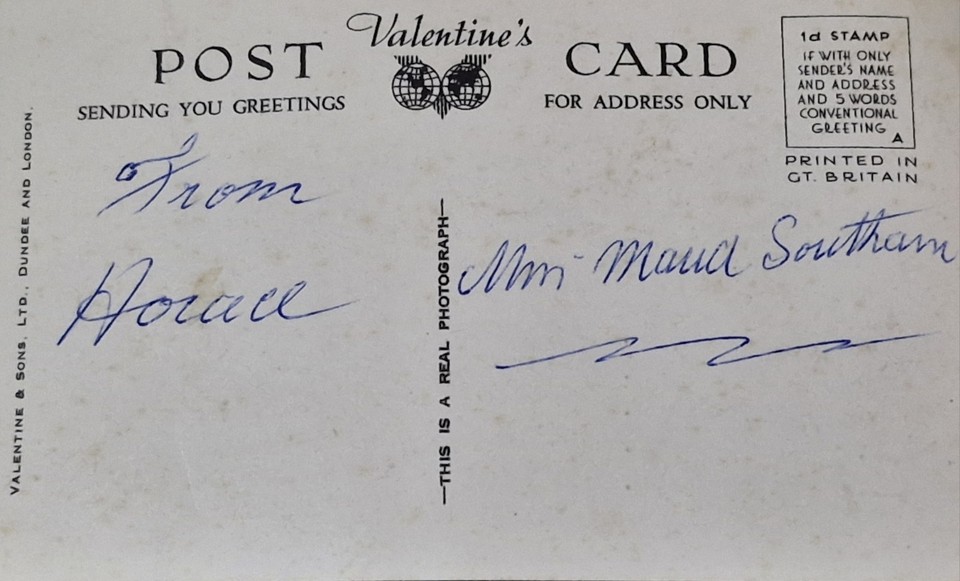 Valentine's
POST CARD
SENDING YOU GREETINGS
FOR ADDRESS ONLY
1d STAMP
IF WITH ONLY
SENDER'S NAME
AND ADDRESS
AND 5 WORDS
CONVENTIONAL
GREETING
A
PRINTED IN
GT. BRITAIN
VALENTINE & SONS, LTD., DUNDEE AND LONDON.
From
Horace
—THIS IS A REAL PHOTOGRAPH—
Maud Southam